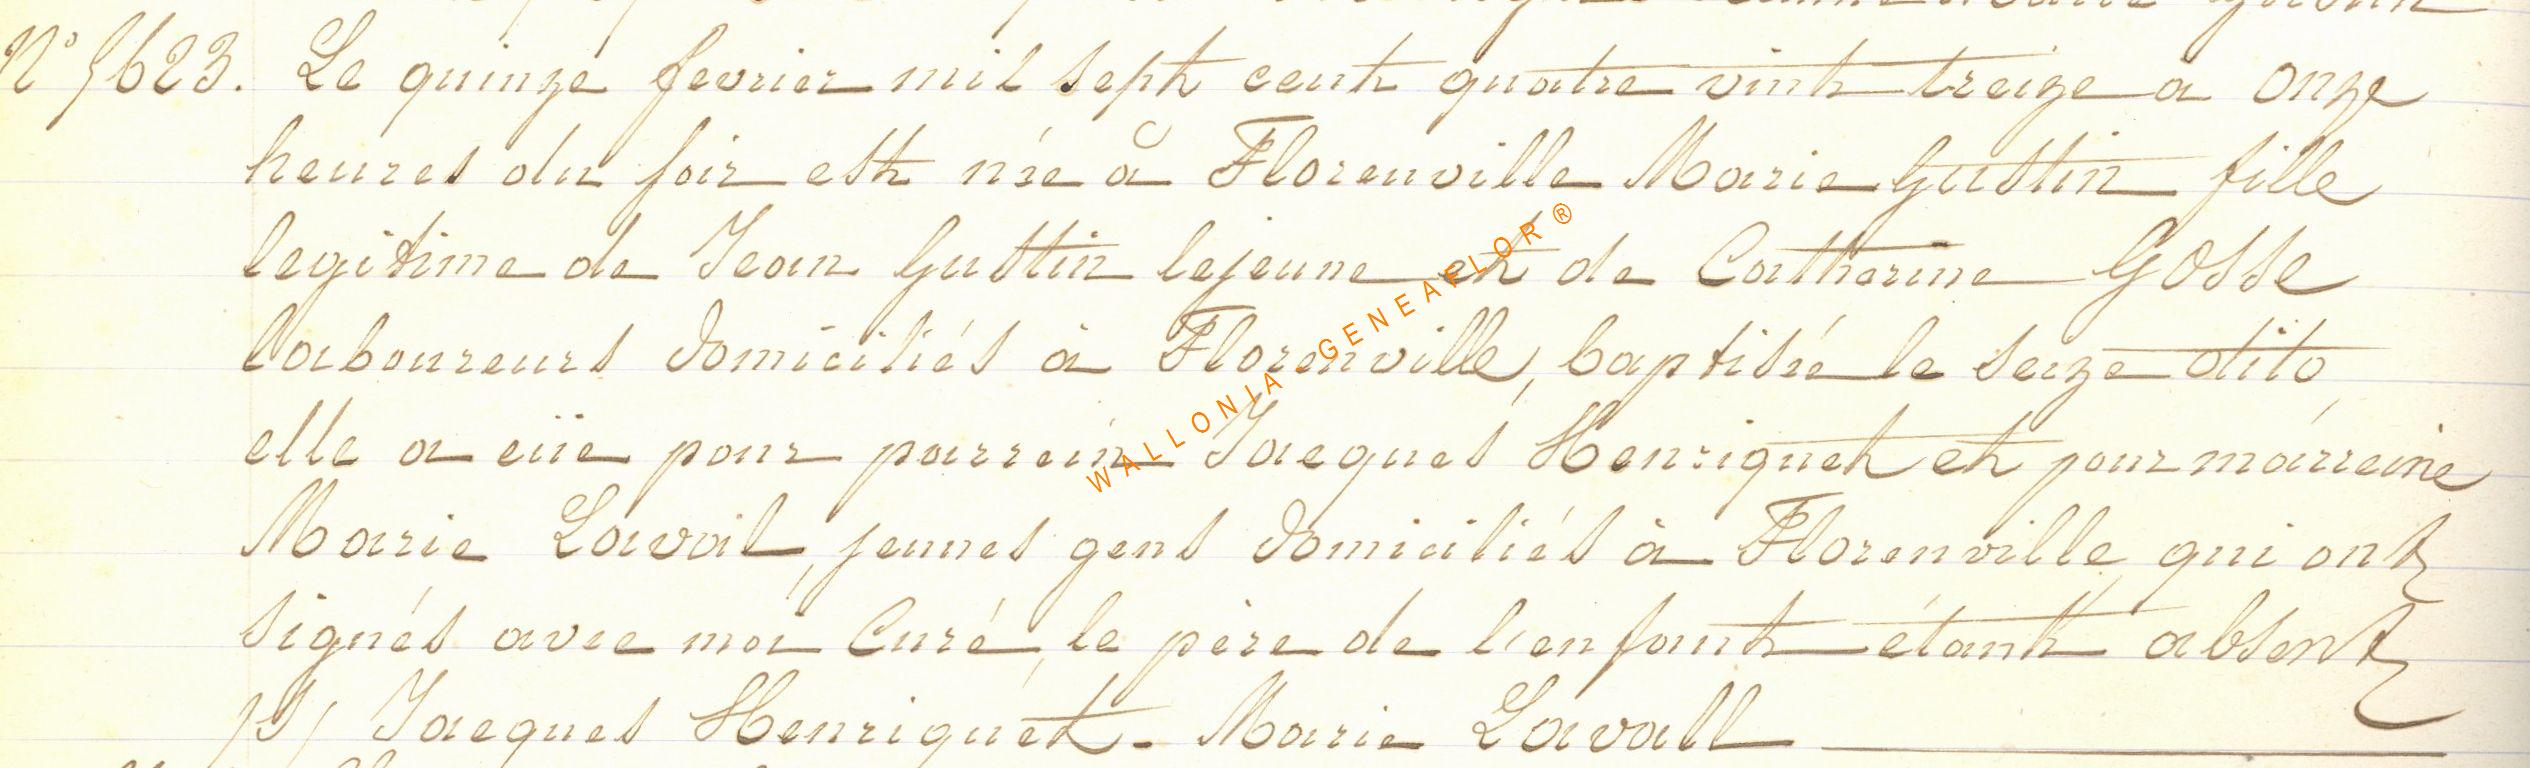 N° 5623. Le quinze fevrier mil sept cent quatre vint treize a onze
heures du soir est née à Florenville Marie Gustin fille
legitime de Jean Gustin lejeune et de Catherine Gosse
laboureurs domiciliés à Florenville, baptisée le seize dito,
elle a eüe pour parrein Jacques Henriquet et pour marreine
Marie Laval, jeunes gens domiciliés à Florenville, qui ont
signés avec moi Curé, le père de l'enfant étant absent
/S/ Jacques Henriquet. Marie Lavall
WALLONIA GENEAFLOR ®